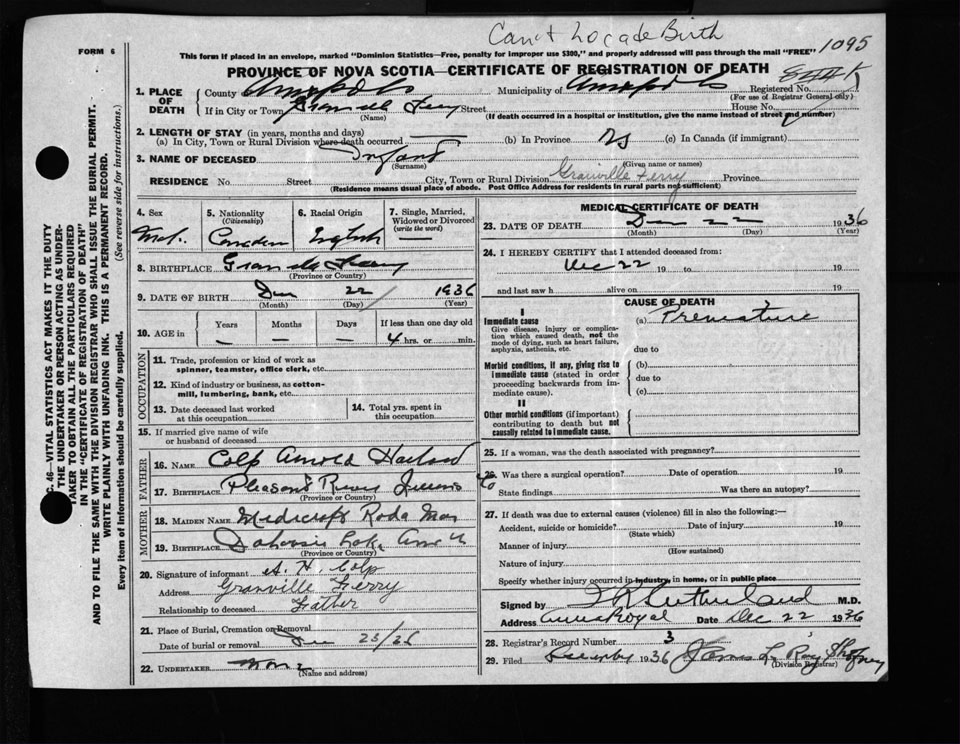 Can't Locade Birth
FORM 6
This form if placed in an envelope, marked "Dominion Statistics—Free, penalty for improper use $300," and properly addressed will pass through the mail "FREE"
1095
PROVINCE OF NOVA SCOTIA—CERTIFICATE OF REGISTRATION OF DEATH
1. PLACE OF DEATH
County Annapolis Municipality of Annapolis Registered No.
(For use of Registrar General only)
If in City or Town Granville Ferry Street House No.
(Name) (If death occurred in a hospital or institution, give the name instead of street and number)
2. LENGTH OF STAY (in years, months and days)
(a) In City, Town or Rural Division where death occurred — (b) In Province NS (c) In Canada (if immigrant)
3. NAME OF DECEASED
(Surname) (Given name or names)
RESIDENCE No. Street City, Town or Rural Division Granville Ferry Province
(Residence means usual place of abode. Post Office Address for residents in rural parts not sufficient)
4. Sex
5. Nationality (Citizenship)
Canadian
6. Racial Origin
English
7. Single, Married, Widowed or Divorced (write the word)
—
8. BIRTHPLACE Granville Ferry
(Province or Country)
9. DATE OF BIRTH Dec 22 1936
(Month) (Day) (Year)
10. AGE in Years Months Days If less than one day old
— — — 4 hrs. or min.
OCCUPATION
11. Trade, profession or kind of work as spinner, teamster, office clerk, etc.
12. Kind of industry or business, as cotton-mill, lumbering, bank, etc.
13. Date deceased last worked at this occupation
14. Total yrs. spent in this occupation
15. If married give name of wife or husband of deceased
FATHER
16. NAME Colp Arnold
17. BIRTHPLACE Pleasant River Queens Co
(Province or Country)
MOTHER
18. MAIDEN NAME Medicraft Roda
19. BIRTHPLACE Dahousie
(Province or Country)
20. Signature of informant A. H. Colp
Address Granville Ferry
Relationship to deceased Father
21. Place of Burial, Cremation or Removal
Date of burial or removal Dec 23/36
22. UNDERTAKER None
(Name and address)
MEDICAL CERTIFICATE OF DEATH
23. DATE OF DEATH Dec 22 1936
(Month) (Day) (Year)
24. I HEREBY CERTIFY that I attended deceased from:
Dec 22 19 to 19
and last saw h alive on 19
CAUSE OF DEATH
I
Immediate cause (a) Premature
Give disease, injury or complication which caused death, not the mode of dying, such as heart failure, asphyxia, asthenia, etc.
due to
Morbid conditions, if any, giving rise to immediate cause (stated in order proceeding backwards from immediate cause).
(b)
due to
(c)
II
Other morbid conditions (if important) contributing to death but not causally related to immediate cause.
25. If a woman, was the death associated with pregnancy?
26. Was there a surgical operation? Date of operation 19
State findings Was there an autopsy?
27. If death was due to external causes (violence) fill in also the following:—
Accident, suicide or homicide? Date of injury 19
(State which)
Manner of injury
(How sustained)
Nature of injury
Specify whether injury occurred in industry, in home, or in public place
Signed by Sutherland M.D.
Address Anna Royal Date Dec 22 1936
28. Registrar's Record Number 3
29. Filed 1936
(Division Registrar)
C. 46—VITAL STATISTICS ACT MAKES IT THE DUTY
THE UNDERTAKER OR PERSON ACTING AS UNDERTAKER TO OBTAIN ALL THE PARTICULARS REQUIRED
IN THE "CERTIFICATE OF REGISTRATION OF DEATH"
AND TO FILE THE SAME WITH THE DIVISION REGISTRAR WHO SHALL ISSUE THE BURIAL PERMIT.
WRITE PLAINLY WITH UNFADING INK. THIS IS A PERMANENT RECORD.
Every item of information should be carefully supplied. (See reverse side for instructions.)